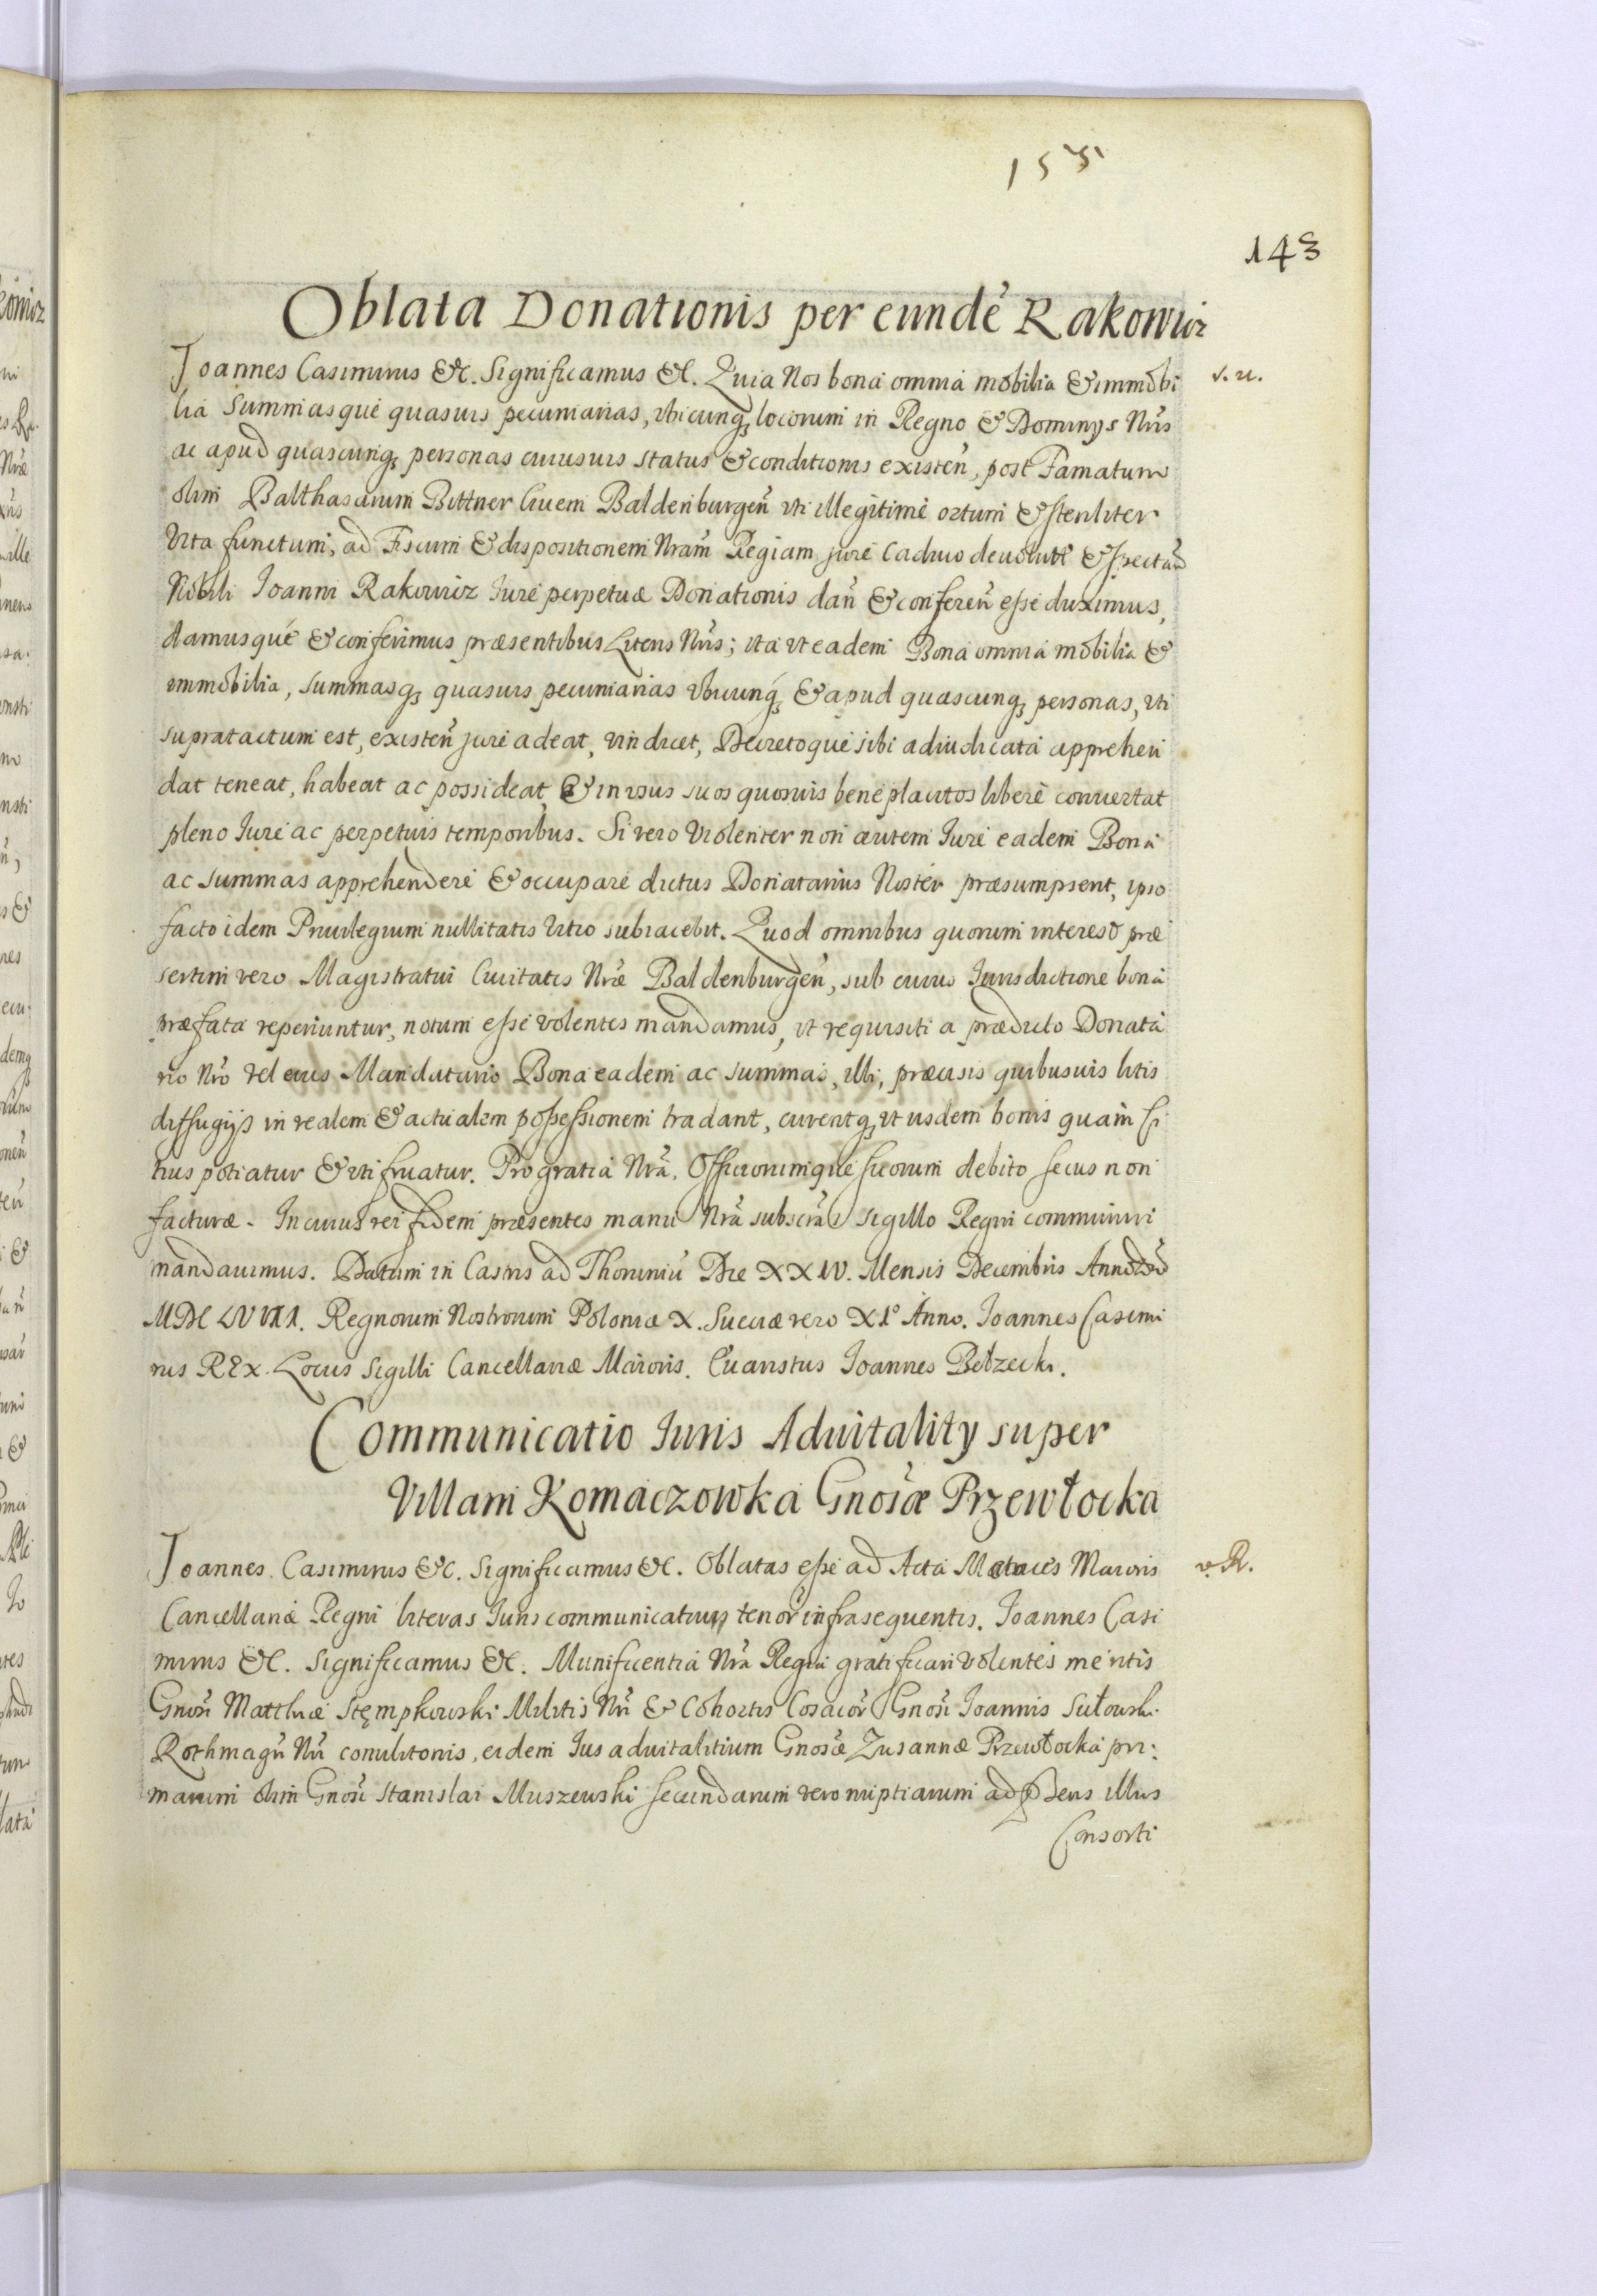 155
143
Oblata Donationis per eundē Rakowicz
Joannes Casimirus &c. Significamus &c. Quia Nos bona omnia mobilia & immobi
v. u.
lia Summasque quasuis pecuniarias, vbicunq; locorum in Regno & Dominys Nrīs
ac apud quascunq; personas cuiusuis status & conditionis existeñ, post Famatum
olim Balthasarum Bittner Ciuem Baldenburgeñ vti illegitimè ortum & steriliter
Vita functum, ad Fiscum & dispositionem Nram̄ Regiam jure Caduco deuoluta & spectañ
Nobili Joanni Rakowicz Iure perpetuæ Donationis dañ & conferen̄ esse duximus,
damusque & conferimus præsentibus Literis Nrīs; ita vt eadem Bona omnia mobilia &
immobilia, summasq; quasuis pecuniarias vbicunq; & apud quascunq; personas, vti
supratactum est, existeñ jure adeat, vindicet, Decretoque sibi adiudicata apprehen
dat teneat, habeat ac possideat & in vsus suos quosuis beneplacitos liberè conuertat
pleno Iure ac perpetuis temporibus. Si vero Violenter non autem Iure eadem Bona
ac summas apprehendere & occupare dictus Donatarius Noster præsumpserit, ipso
facto idem Priuilegium nullitatis Vitio subiacebit. Quod omnibus quorum interest præ
sertim vero Magistratui Ciuitatis Nræ Baldenburgeñ, sub cuius Iurisdictione bona
præfata reperiuntur, notum esse volentes mandamus, vt requisiti a prædicto Donata
rio Nrō vel eius Mandatario Bona eadem ac summas, illi, præcisis quibusuis litis
diffugijs in realem & actualem possessionem tradant, curentq; vt ijsdem bonis quam ci
tius potiatur & vti fruatur. Pro gratia Nrā. Officiorumque suorum debito secus non
facturæ. In cuius rei fidem præsentes manu Nrā subscrās sigillo Regni communiri
mandauimus. Datum in Castris ad Thoruniū Die XXIV. Mensis Decembris Anno Dn̄i
MDCLVIII. Regnorum Nostrorum Poloniæ X. Sueciæ vero XIº Anno. Joannes Casimi
rus REX. Locus Sigilli Cancellariæ Maioris. Euaristus Joannes Bełzecki.
Communicatio Iuris Aduitalitÿ super
Villam Komaczowka Gnosæ Przewłocka
Joannes Casimirus &c. Significamus &c. Oblatas esse ad Acta Metrices Maioris
v. R.
Cancellariæ Regni literas Iuris communicatiuas tenor̄ infrasequentis. Joannes Casi
mirus &c. Significamus &c. Munificentia Nrā Regia gratificari volentes meritis
Gnosī Matthiæ Stęmpkowski Militis Nrī & Cohortis Cosacor̄ Gnosī Joannis Sułowski
Rothmagrī Nrī conulitonis, eidem Ius aduitalitium Gnosæ Zusannæ Przewłocka pri:
marum olim Gnosī Stanislai Muszewski secundarum vero nuptiarum ad præsens illius
Consorti